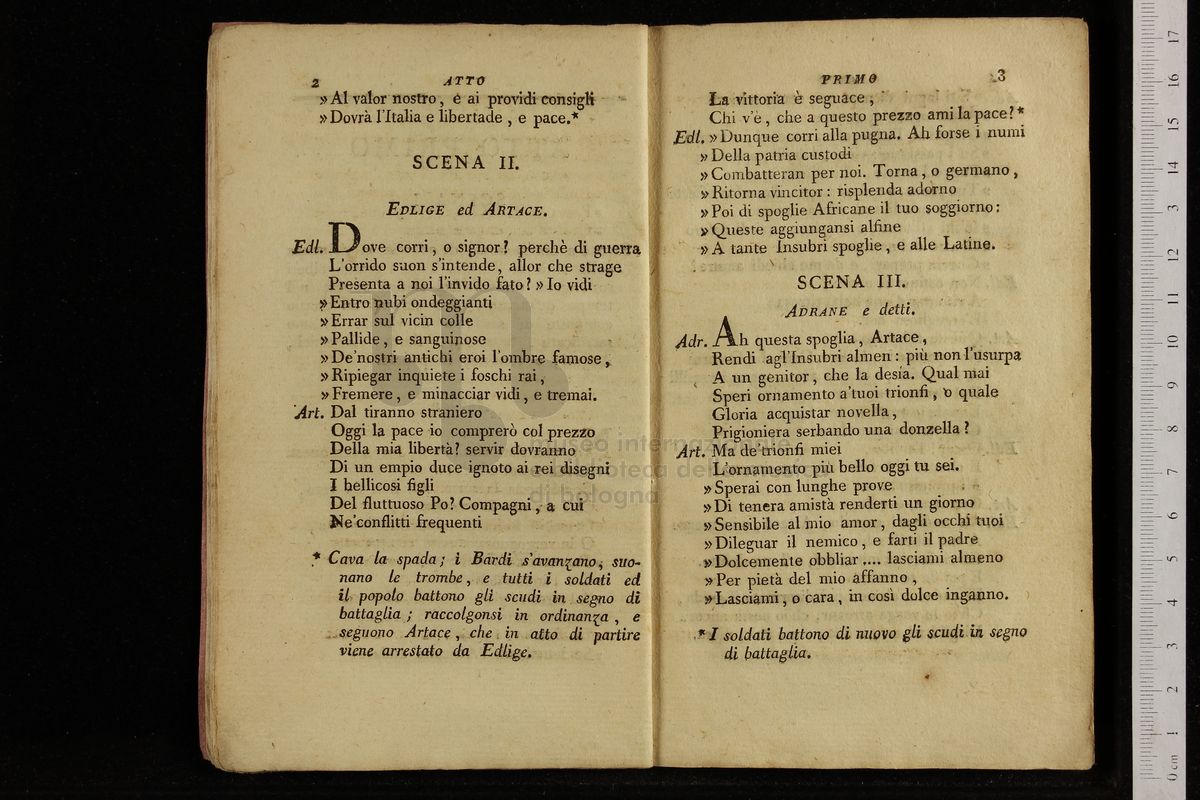 2 ATTO
» Al valor nostro, e ai providi consigli
» Dovrà l'Italia e libertade, e pace.*
SCENA II.
EDLIGE ed ARTACE.
Edl. Dove corri, o signor? perchè di guerra
L'orrido suon s'intende, allor che strage
Presenta a noi l'invido fato? » Io vidi
» Entro nubi ondeggianti
» Errar sul vicin colle
» Pallide, e sanguinose
» De'nostri antichi eroi l'ombre famose,
» Ripiegar inquiete i foschi rai,
» Fremere, e minacciar vidi, e tremai.
Art. Dal tiranno straniero
Oggi la pace io comprerò col prezzo
Della mia libertà? servir dovranno
Di un empio duce ignoto ai rei disegni
I bellicosi figli
Del fluttuoso Po? Compagni, a cui
Ne'conflitti frequenti
* Cava la spada; i Bardi s'avanzano, suo-
nano le trombe, e tutti i soldati ed
il popolo battono gli scudi in segno di
battaglia; raccolgonsi in ordinanza, e
seguono Artace, che in atto di partire
viene arrestato da Edlige.
PRIMO 3
La vittoria è seguace,
Chi v'è, che a questo prezzo ami la pace?*
Edl. » Dunque corri alla pugna. Ah forse i numi
» Della patria custodi
» Combatteran per noi. Torna, o germano,
» Ritorna vincitor: risplenda adorno
» Poi di spoglie Africane il tuo soggiorno:
» Queste aggiungansi alfine
» A tante Insubri spoglie, e alle Latine.
SCENA III.
ADRANE e detti.
Adr. Ah questa spoglia, Artace,
Rendi agl'Insubri almen: più non l'usurpa
A un genitor, che la desia. Qual mai
Speri ornamento a'tuoi trionfi, o quale
Gloria acquistar novella,
Prigioniera serbando una donzella?
Art. Ma de'trionfi miei
L'ornamento più bello oggi tu sei.
» Sperai con lunghe prove
» Di tenera amistà renderti un giorno
» Sensibile al mio amor, dagli occhi tuoi
» Dileguar il nemico, e farti il padre
» Dolcemente obbliar .... lasciami almeno
» Per pietà del mio affanno,
» Lasciami, o cara, in così dolce inganno.
* I soldati battono di nuovo gli scudi in segno
di battaglia.
museo internazionale
di bologna
0 cm 1 2 3 4 5 6 7 8 9 10 11 12 13 14 15 16 17